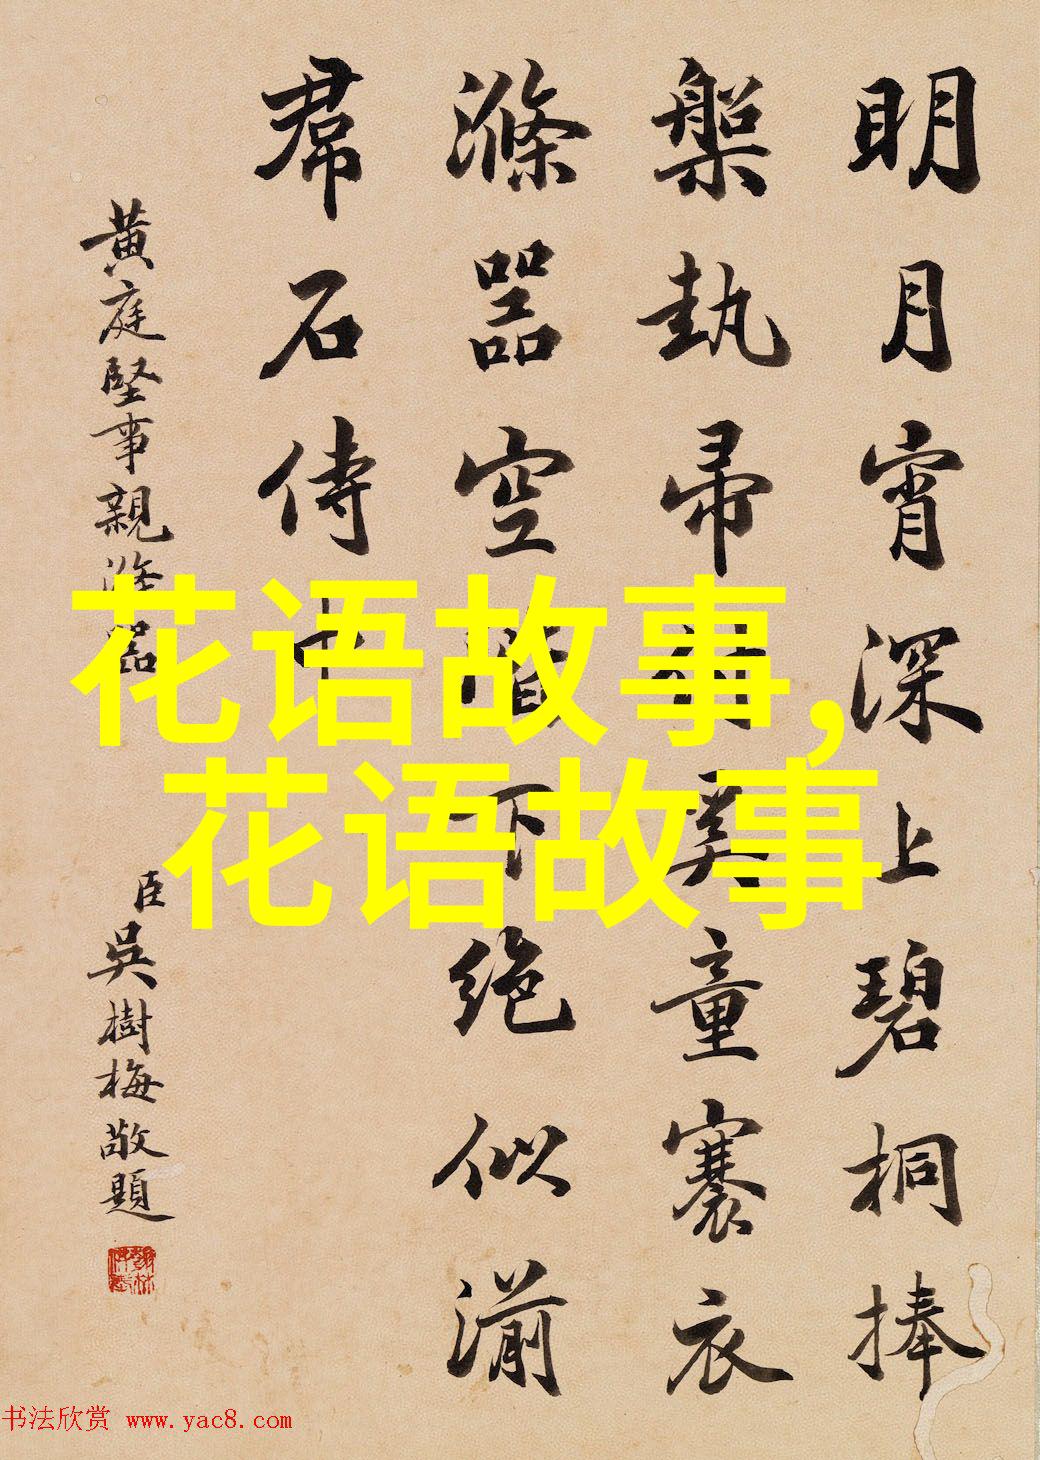 明月宵深上碧桐捧
槃執帚奚童褰衣
滌器空階下絶似湔
帬石侍中
黄庭堅事親滌器
臣吳樹梅敬題
花语故事,
花语故事
书法欣赏 www.yac8.com